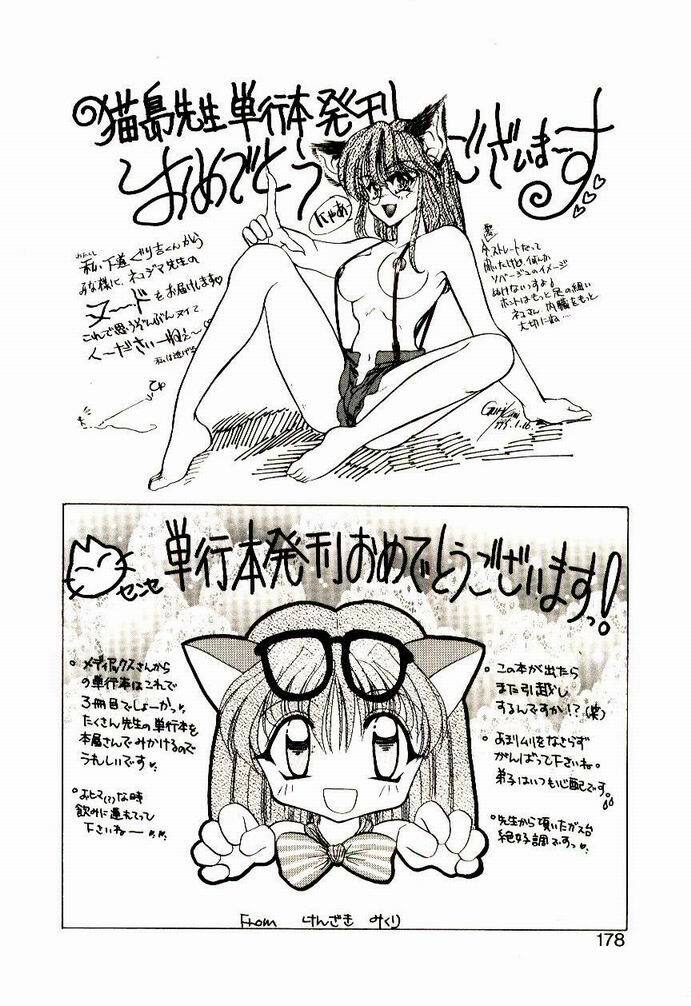 猫島先生単行本発刊
おめでとうございまーす
にゃあ
私、下道ぐり吉くんから
みな様に、ネコジマ先生の
ヌードをお届けします
これで思うぞんぶんヌイて
く〜ださいーねぇ〜
私は逃げる
てや
ストレートだって
聞いたけど、何んか
ソバージュのイメージ
ぬけないっすよ!
ホントはもっと足の細い
ネコさん 内臓をもっと
大切にね…
センセ 単行本発刊おめでとうございますっ!
・メディアックスさんから
の単行本はこれで
3冊目でしょーか。
たくさん先生の単行本を
本屋さんでみかけるので
うれしいです
・おヒマ(?)な時
飲みに連れてって
下さいねー
・この本が出たら
また引越し
するんですか!?(笑)
・あまりムリをなさらず
がんばって下さいね。
弟子はいつも心配です。
・先生から頂いたガス台
絶好調ですっ
From けんざき みくり
178